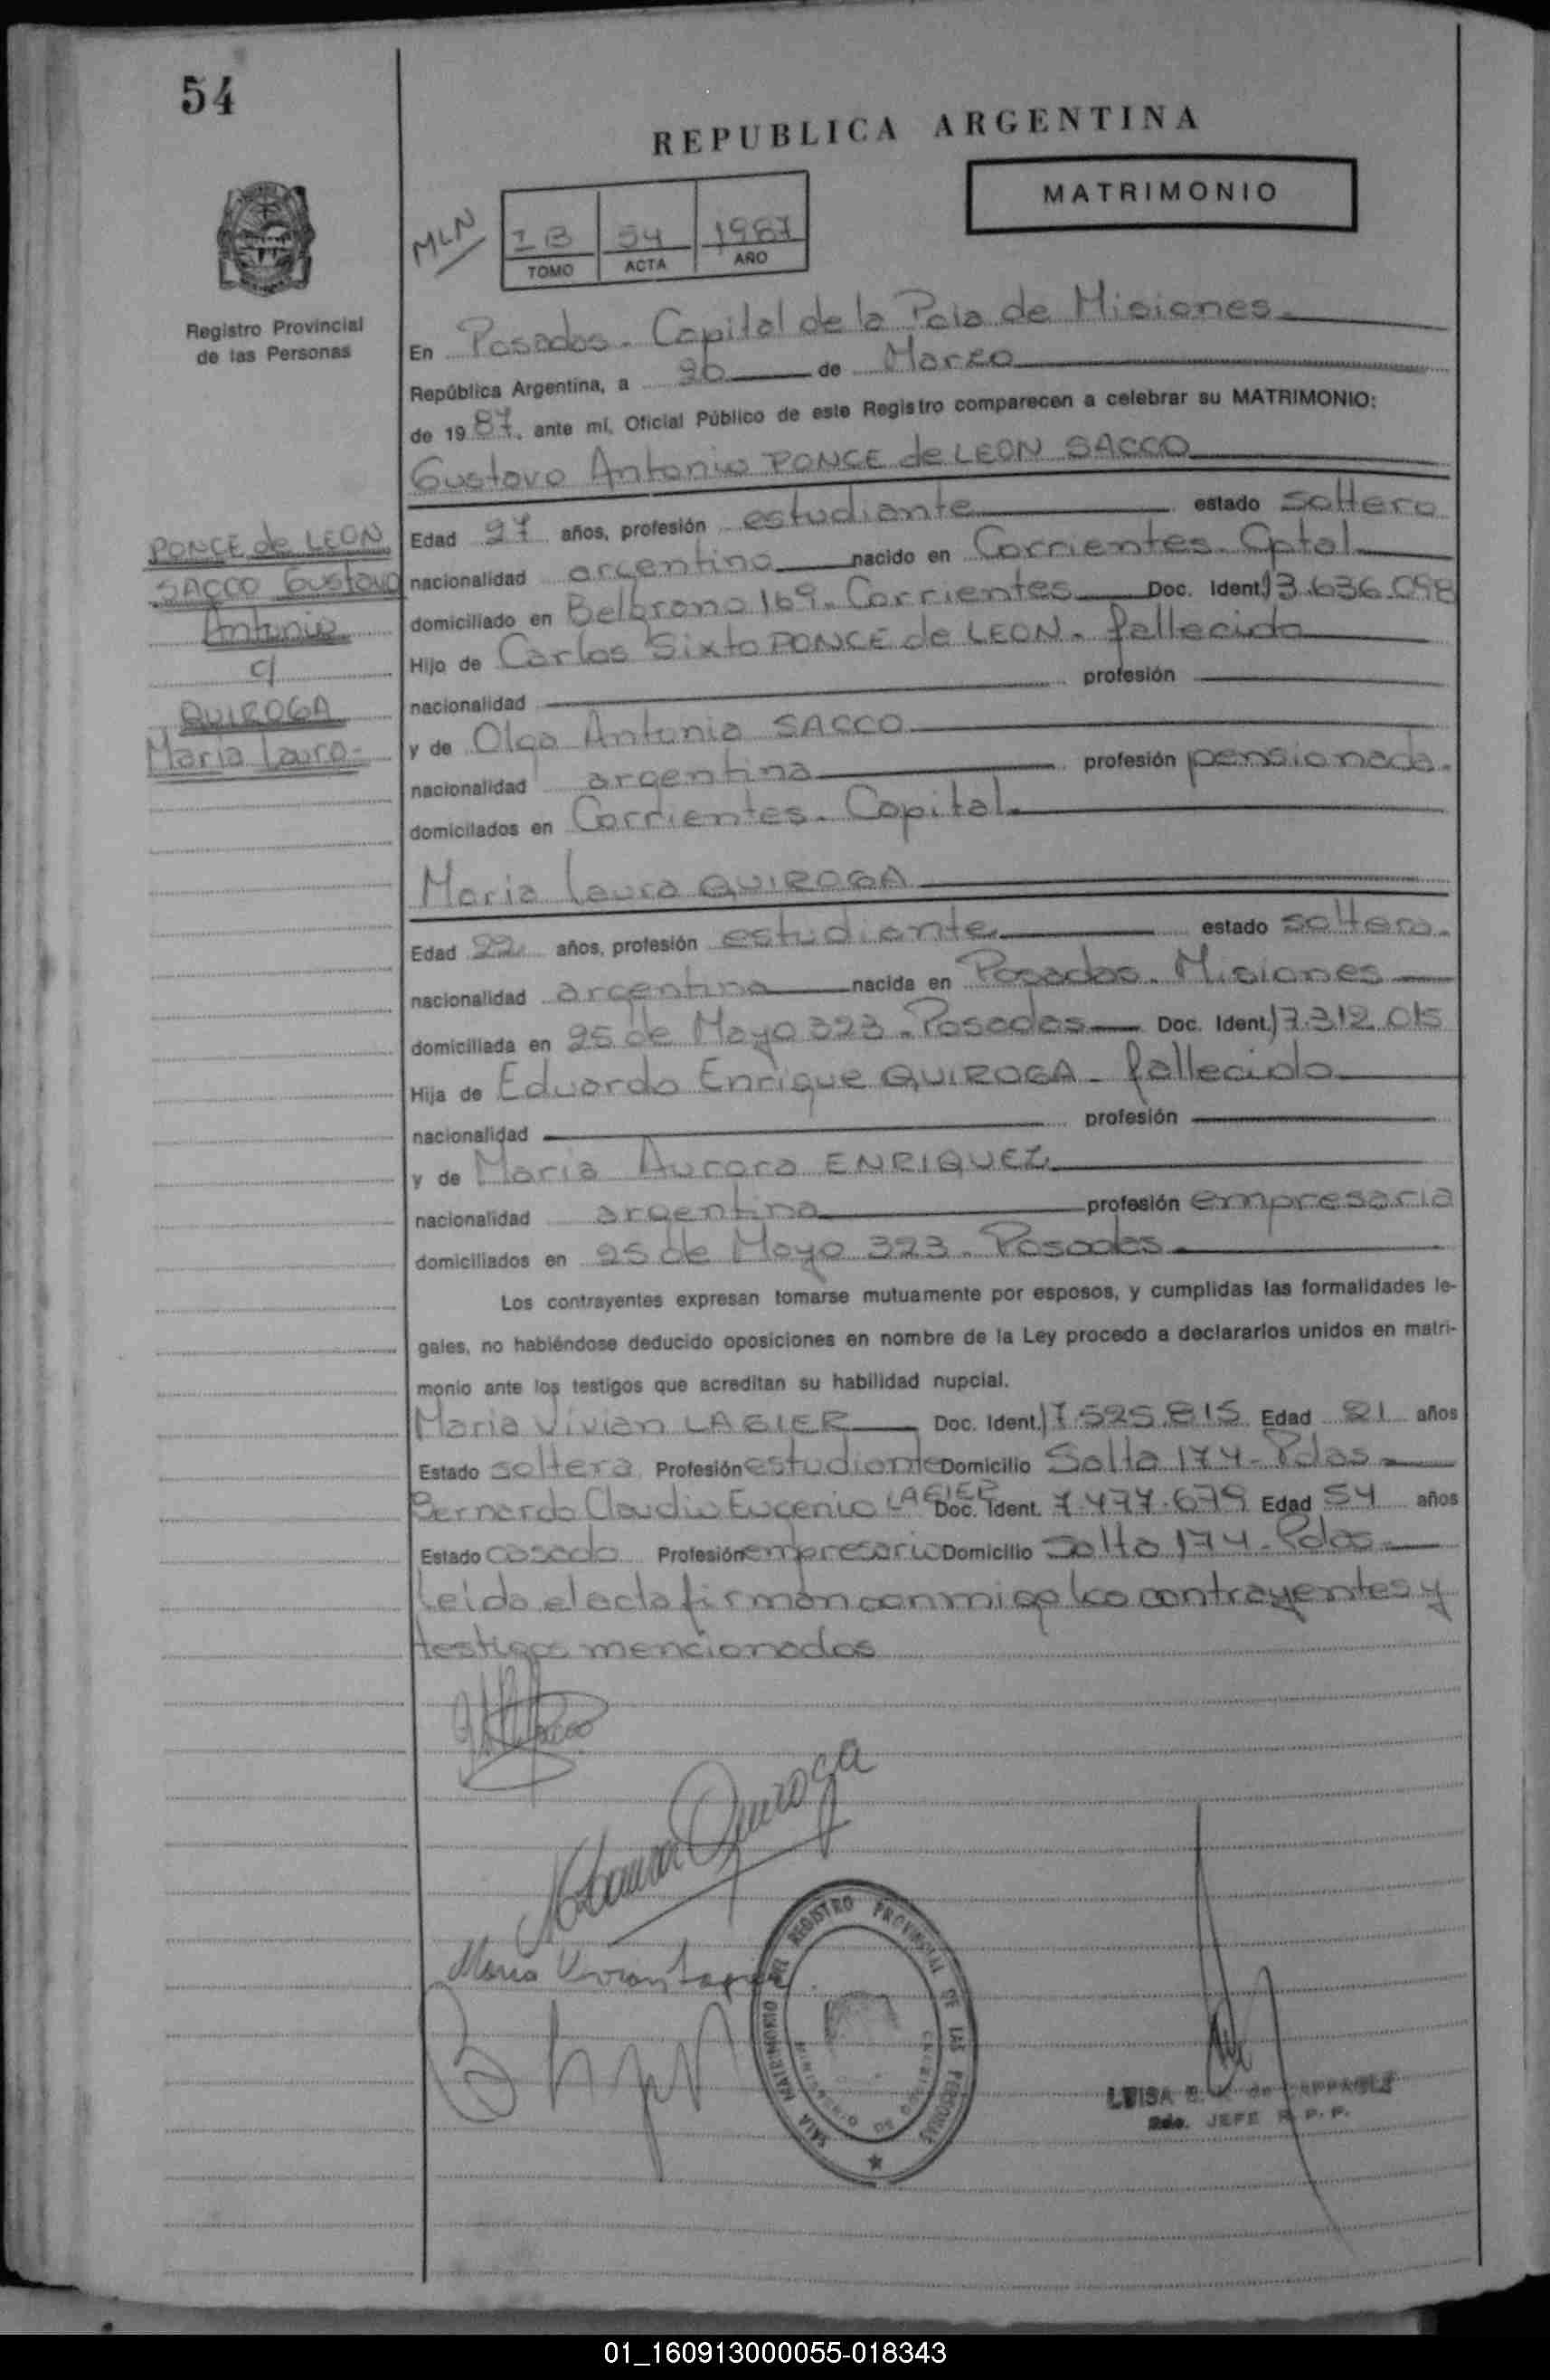 54
REPUBLICA ARGENTINA
MATRIMONIO
MLN
I B 54 1987
TOMO ACTA AÑO
Registro Provincial
de las Personas
En Posadas. Capital de la Pcia de Misiones.
República Argentina, a 20 de Marzo
de 1987, ante mí, Oficial Público de este Registro comparecen a celebrar su MATRIMONIO:
Gustavo Antonio PONCE de LEON SACCO
PONCE de LEON
SACCO Gustavo
Antonio
c/
QUIROGA
Maria Laura.
Edad 27 años, profesión estudiante estado soltero
nacionalidad argentino nacido en Corrientes. Cptal
domiciliado en Belgrano 169. Corrientes Doc. Ident. 13.636.098
Hijo de Carlos Sixto PONCE de LEON. fallecido
nacionalidad profesión
y de Olga Antonia SACCO
nacionalidad argentina profesión pensionada.
domiciliados en Corrientes. Capital.
Maria Laura QUIROGA
Edad 22 años, profesión estudiante estado soltera.
nacionalidad argentina nacida en Posadas. Misiones
domiciliada en 25 de Mayo 323. Posadas Doc. Ident. 17.312.015
Hija de Eduardo Enrique QUIROGA. fallecido
nacionalidad profesión
y de Maria Aurora ENRIQUEZ
nacionalidad argentina profesión empresaria
domiciliados en 25 de Mayo 323. Posadas.
Los contrayentes expresan tomarse mutuamente por esposos, y cumplidas las formalidades le-
gales, no habiéndose deducido oposiciones en nombre de la Ley procedo a declararlos unidos en matri-
monio ante los testigos que acreditan su habilidad nupcial.
Maria Vivian LAGIER Doc. Ident. 17.525.815 Edad 21 años
Estado soltera Profesión estudiante Domicilio Salta 174. Pdas.
Bernardo Claudio Eugenio LAGIER Doc. Ident. 7.477.679 Edad 54 años
Estado casado Profesión empresario Domicilio Salta 174. Pdas.
Leida el acta firman conmigo los contrayentes y
testigos mencionados
Laura Quiroga
Maria Vivian Lagier
SALA MATRIMONIO DEL REGISTRO PROVINCIAL DE LAS PERSONAS
LUISA
2do. JEFE R. P. P.
01_160913000055-018343